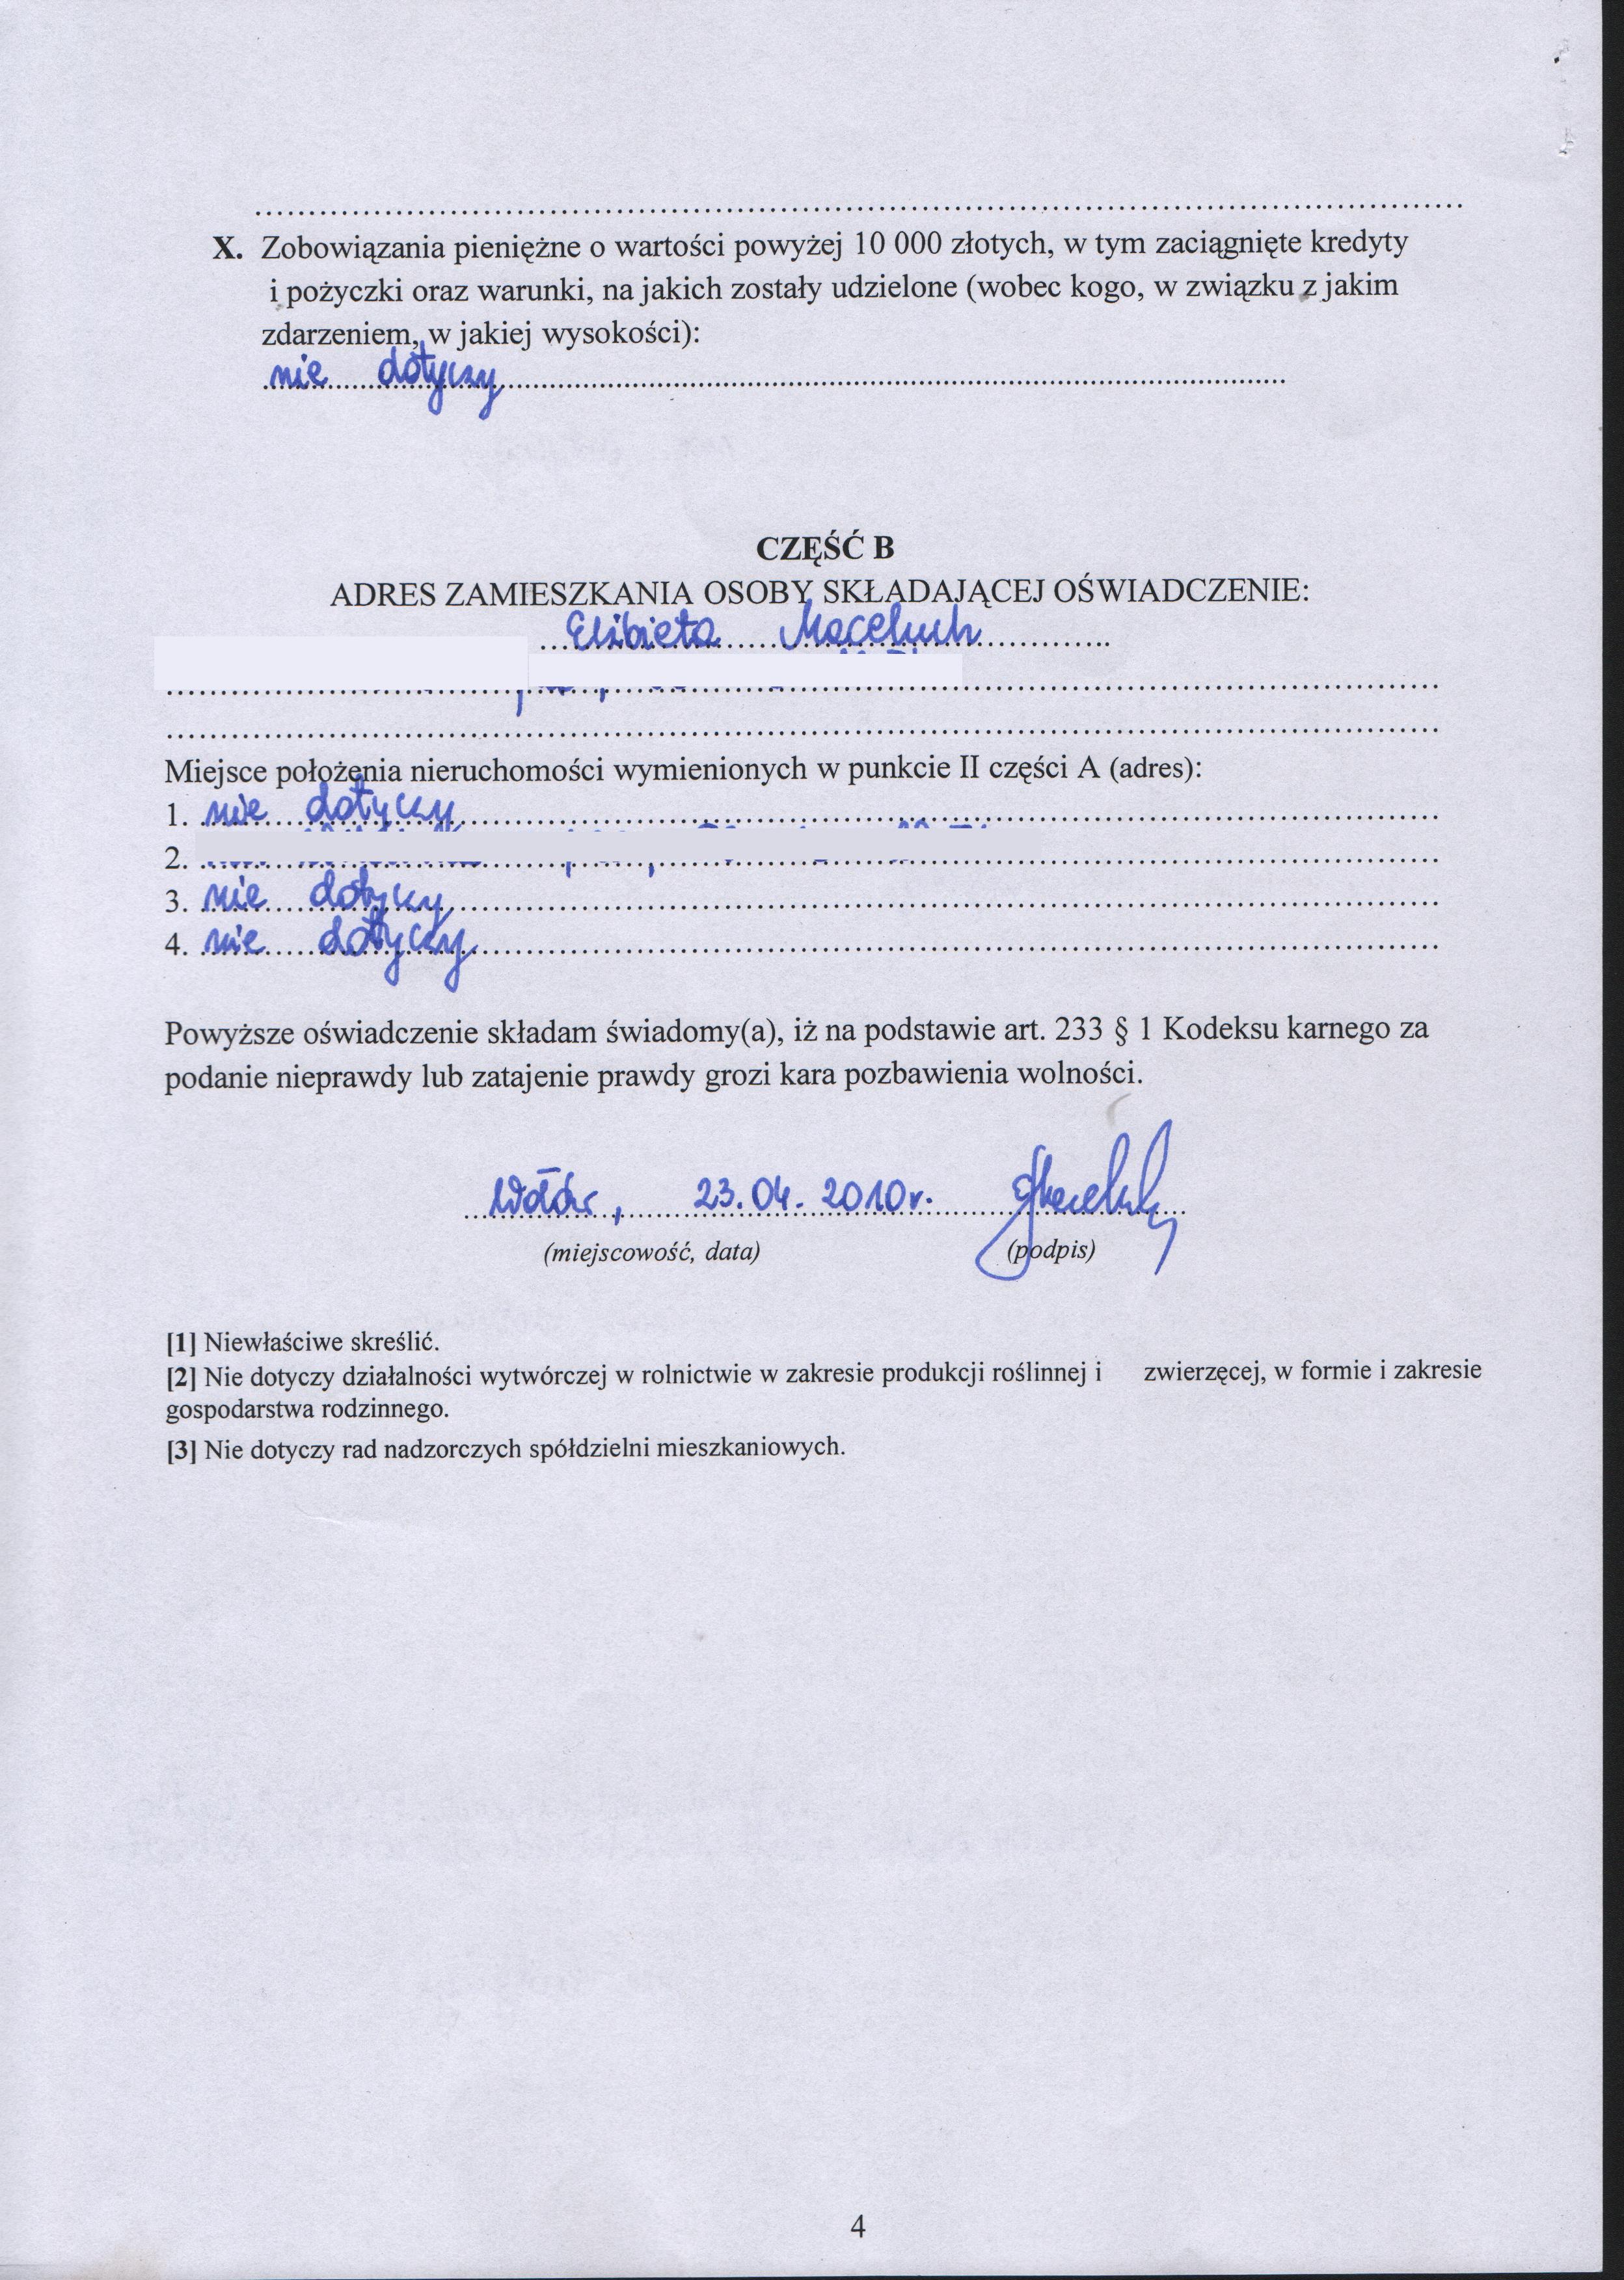 X. Zobowiązania pieniężne o wartości powyżej 10 000 złotych, w tym zaciągnięte kredyty
i pożyczki oraz warunki, na jakich zostały udzielone (wobec kogo, w związku z jakim
zdarzeniem, w jakiej wysokości):
nie dotyczy
CZĘŚĆ B
ADRES ZAMIESZKANIA OSOBY SKŁADAJĄCEJ OŚWIADCZENIE:
Elżbieta Maceluch
Miejsce położenia nieruchomości wymienionych w punkcie II części A (adres):
1. nie dotyczy
2.
3. nie dotyczy
4. nie dotyczy
Powyższe oświadczenie składam świadomy(a), iż na podstawie art. 233 § 1 Kodeksu karnego za
podanie nieprawdy lub zatajenie prawdy grozi kara pozbawienia wolności.
23.04.2010r.
(miejscowość, data) (podpis)
[1] Niewłaściwe skreślić.
[2] Nie dotyczy działalności wytwórczej w rolnictwie w zakresie produkcji roślinnej i zwierzęcej, w formie i zakresie
gospodarstwa rodzinnego.
[3] Nie dotyczy rad nadzorczych spółdzielni mieszkaniowych.
4